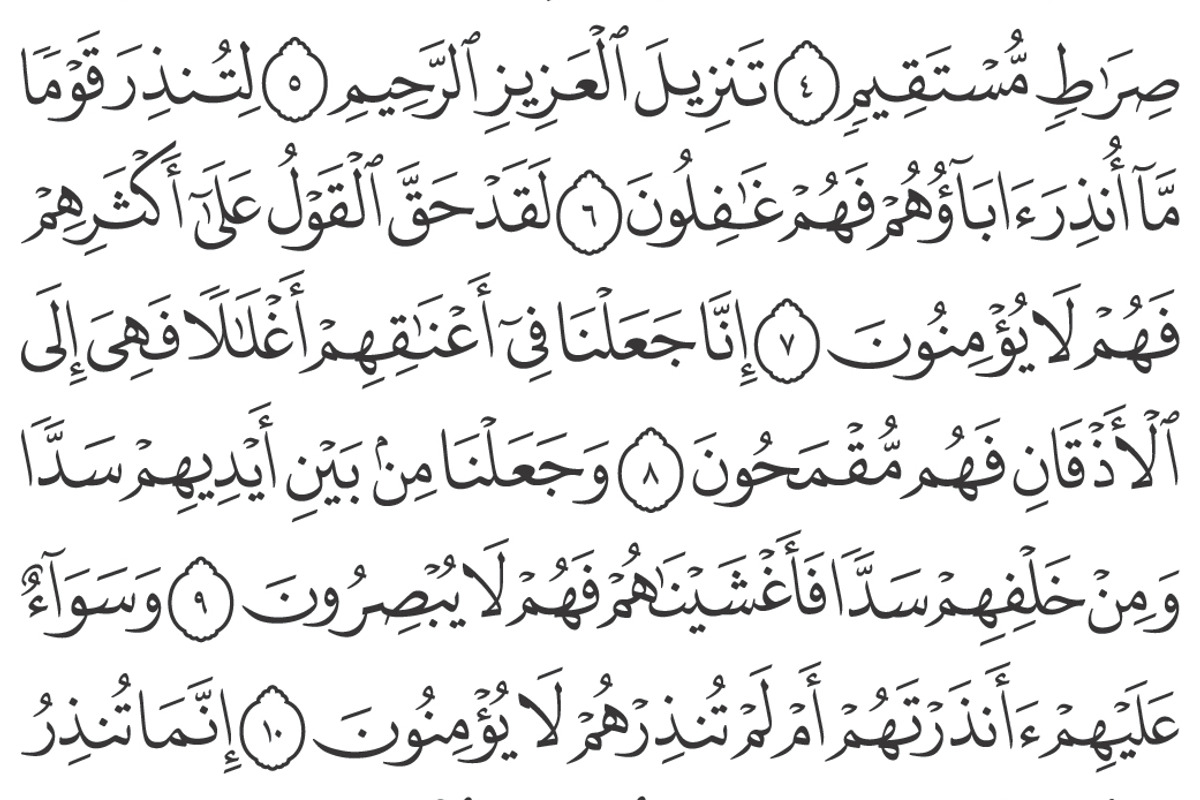 صِرَٰطٖ مُّسۡتَقِيمٖ ٤ تَنزِيلَ ٱلۡعَزِيزِ ٱلرَّحِيمِ ٥ لِتُنذِرَ قَوۡمٗا
مَّآ أُنذِرَ ءَابَآؤُهُمۡ فَهُمۡ غَٰفِلُونَ ٦ لَقَدۡ حَقَّ ٱلۡقَوۡلُ عَلَىٰٓ أَكۡثَرِهِمۡ
فَهُمۡ لَا يُؤۡمِنُونَ ٧ إِنَّا جَعَلۡنَا فِيٓ أَعۡنَٰقِهِمۡ أَغۡلَٰلٗا فَهِيَ إِلَى
ٱلۡأَذۡقَانِ فَهُم مُّقۡمَحُونَ ٨ وَجَعَلۡنَا مِنۢ بَيۡنِ أَيۡدِيهِمۡ سَدّٗا
وَمِنۡ خَلۡفِهِمۡ سَدّٗا فَأَغۡشَيۡنَٰهُمۡ فَهُمۡ لَا يُبۡصِرُونَ ٩ وَسَوَآءٌ
عَلَيۡهِمۡ ءَأَنذَرۡتَهُمۡ أَمۡ لَمۡ تُنذِرۡهُمۡ لَا يُؤۡمِنُونَ ١٠ إِنَّمَا تُنذِرُ